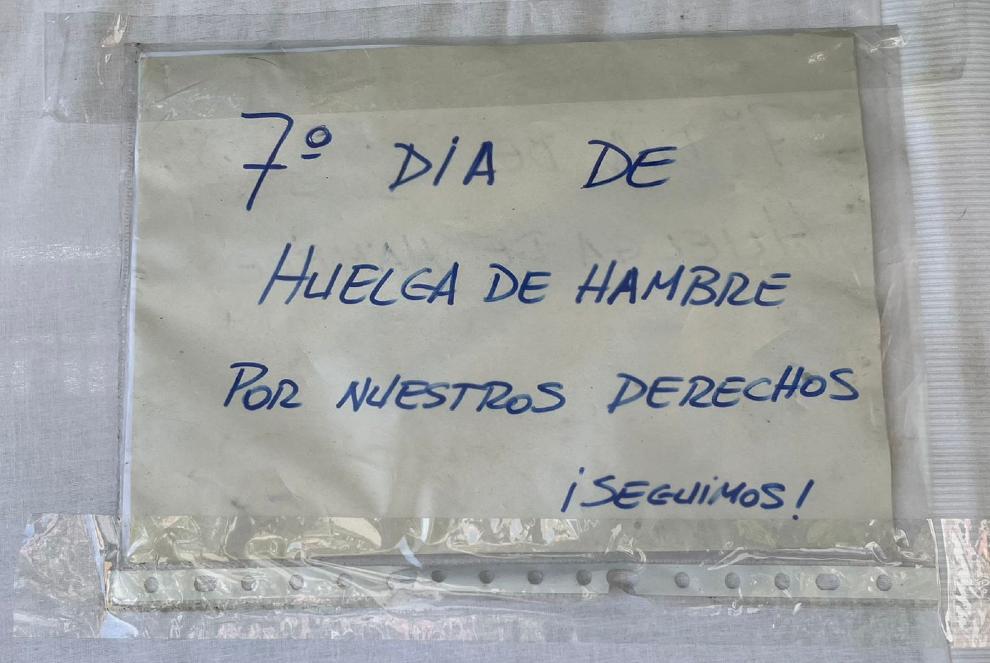 7º DIA DE
HUELGA DE HAMBRE
POR NUESTROS DERECHOS
¡SEGUIMOS!